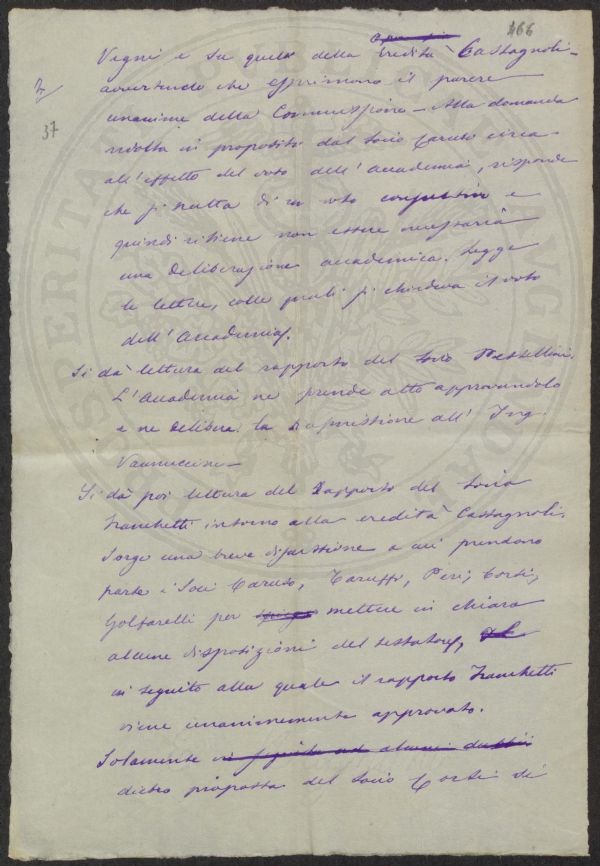 466
37
Vegni e su quella della eredità Castagnoli-
avvertendo che esprimono il parere
unanime della Commissione - Alla domanda
rivolta in proposito dal Socio Caruso circa
all'effetto del voto dell'Accademia, risponde
che si tratta di un voto consultivo e
quindi ritiene non essere necessaria
una deliberazione accademica. Legge
le lettere, colle quali si chiedeva il voto
dell'Accademia.
Si dà lettura del rapporto del Socio Pestellini.
L'Accademia ne prende atto approvandolo
e ne delibera la trasmissione all'Ing.
Vannuccini -
Si dà poi lettura del Rapporto del Socio
Franchetti intorno alla eredità Castagnoli.
Sorge una breve discussione a cui prendono
parte i Soci Caruso, Taruffi, Peri, Corsi,
Golfarelli per mettere in chiaro
alcune disposizioni del testatore,
in seguito alla quale il rapporto Franchetti
viene unanimemente approvato.
Solamente in seguito ad alcuni dubbii
dietro proposta del Socio Corsi si
PROSPERITATI AUG